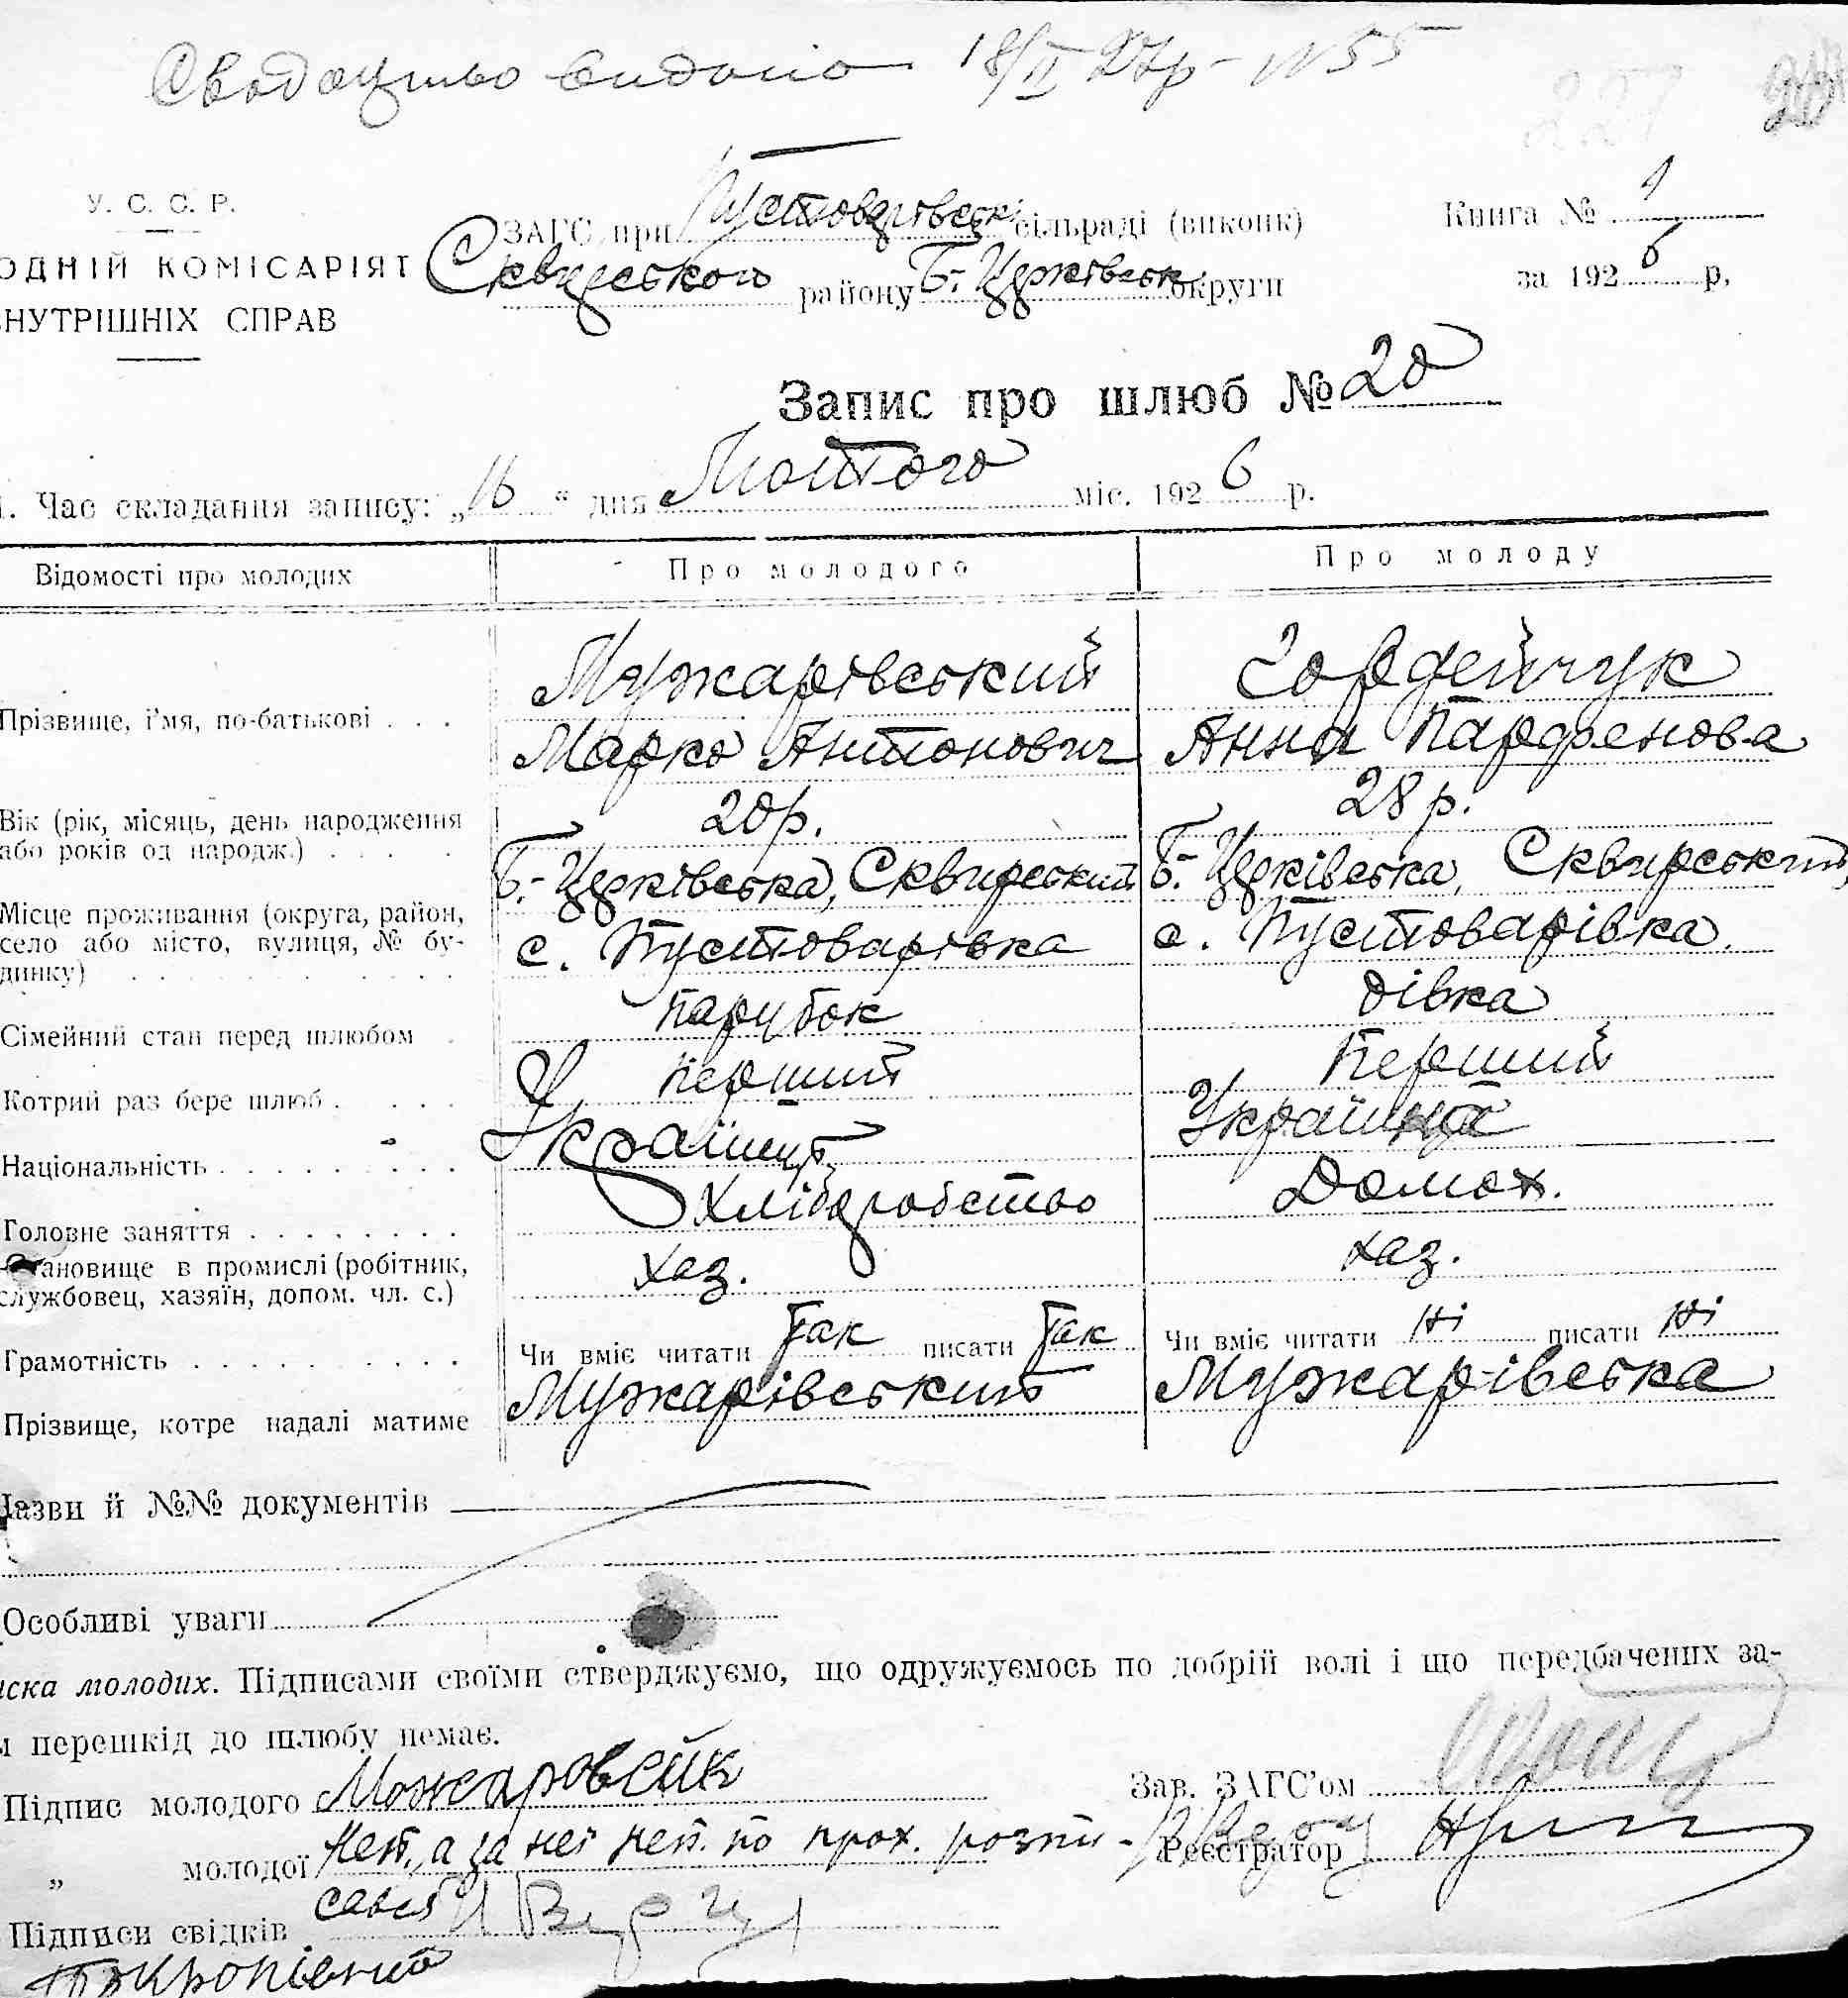 Свідоцтво видано 18/II 27р - N 55
У. С. С. Р.
ОДНІЙ КОМІСАРІЯТ
ВНУТРІШНІХ СПРАВ
ЗАГС при Пустоварівськ сільраді (виконк)
Сквирського району Б.-Церківськ. округи
Книга № 1
за 192 6 р,
Запис про шлюб № 20
1. Час складання запису: „16“ дня Лютого міс. 192 6 р.
Відомості про молодих
Про молодого
Про молоду
Прізвище, ім'я, по-батькові . . .
Мужарівський
Марко Антонович
Гордейчук
Анна Парфенова
Вік (рік, місяць, день народження
або років од народж.) . . . .
20р.
28 р.
Місце проживання (округа, район,
село або місто, вулиця, № бу-
динку) . . . . . . . .
Б.-Церківська, Сквирський
с. Пустоварівка
Б.-Церківська, Сквирський,
с. Пустоварівка.
Сімейний стан перед шлюбом .
парубок
дівка
Котрий раз бере шлюб . . . .
перший
перший
Національність . . . . . . . . .
Українец
Українка
Головне заняття . . . . . . . .
Хліборобство
Домох.
Становище в промислі (робітник,
службовец, хазяїн, допом. чл. с.)
хаз.
хаз.
Грамотність . . . . . . . . . .
Чи вміє читати так писати так
Чи вміє читати ні писати ні
Прізвище, котре надалі матиме
Мужарівський
Мужарівська
Назви й №№ документів
Особливі уваги
иска молодих. Підписами своїми стверджуємо, що одружуємось по добрій волі і що передбачених за-
м перешкід до шлюбу немає.
Підпис молодого Можаровсйк
Зав. ЗАГС'ом
„ молодої Неп., а за неї неп. по прох. розпи-
Реєстратор
савсь
Підписи свідків